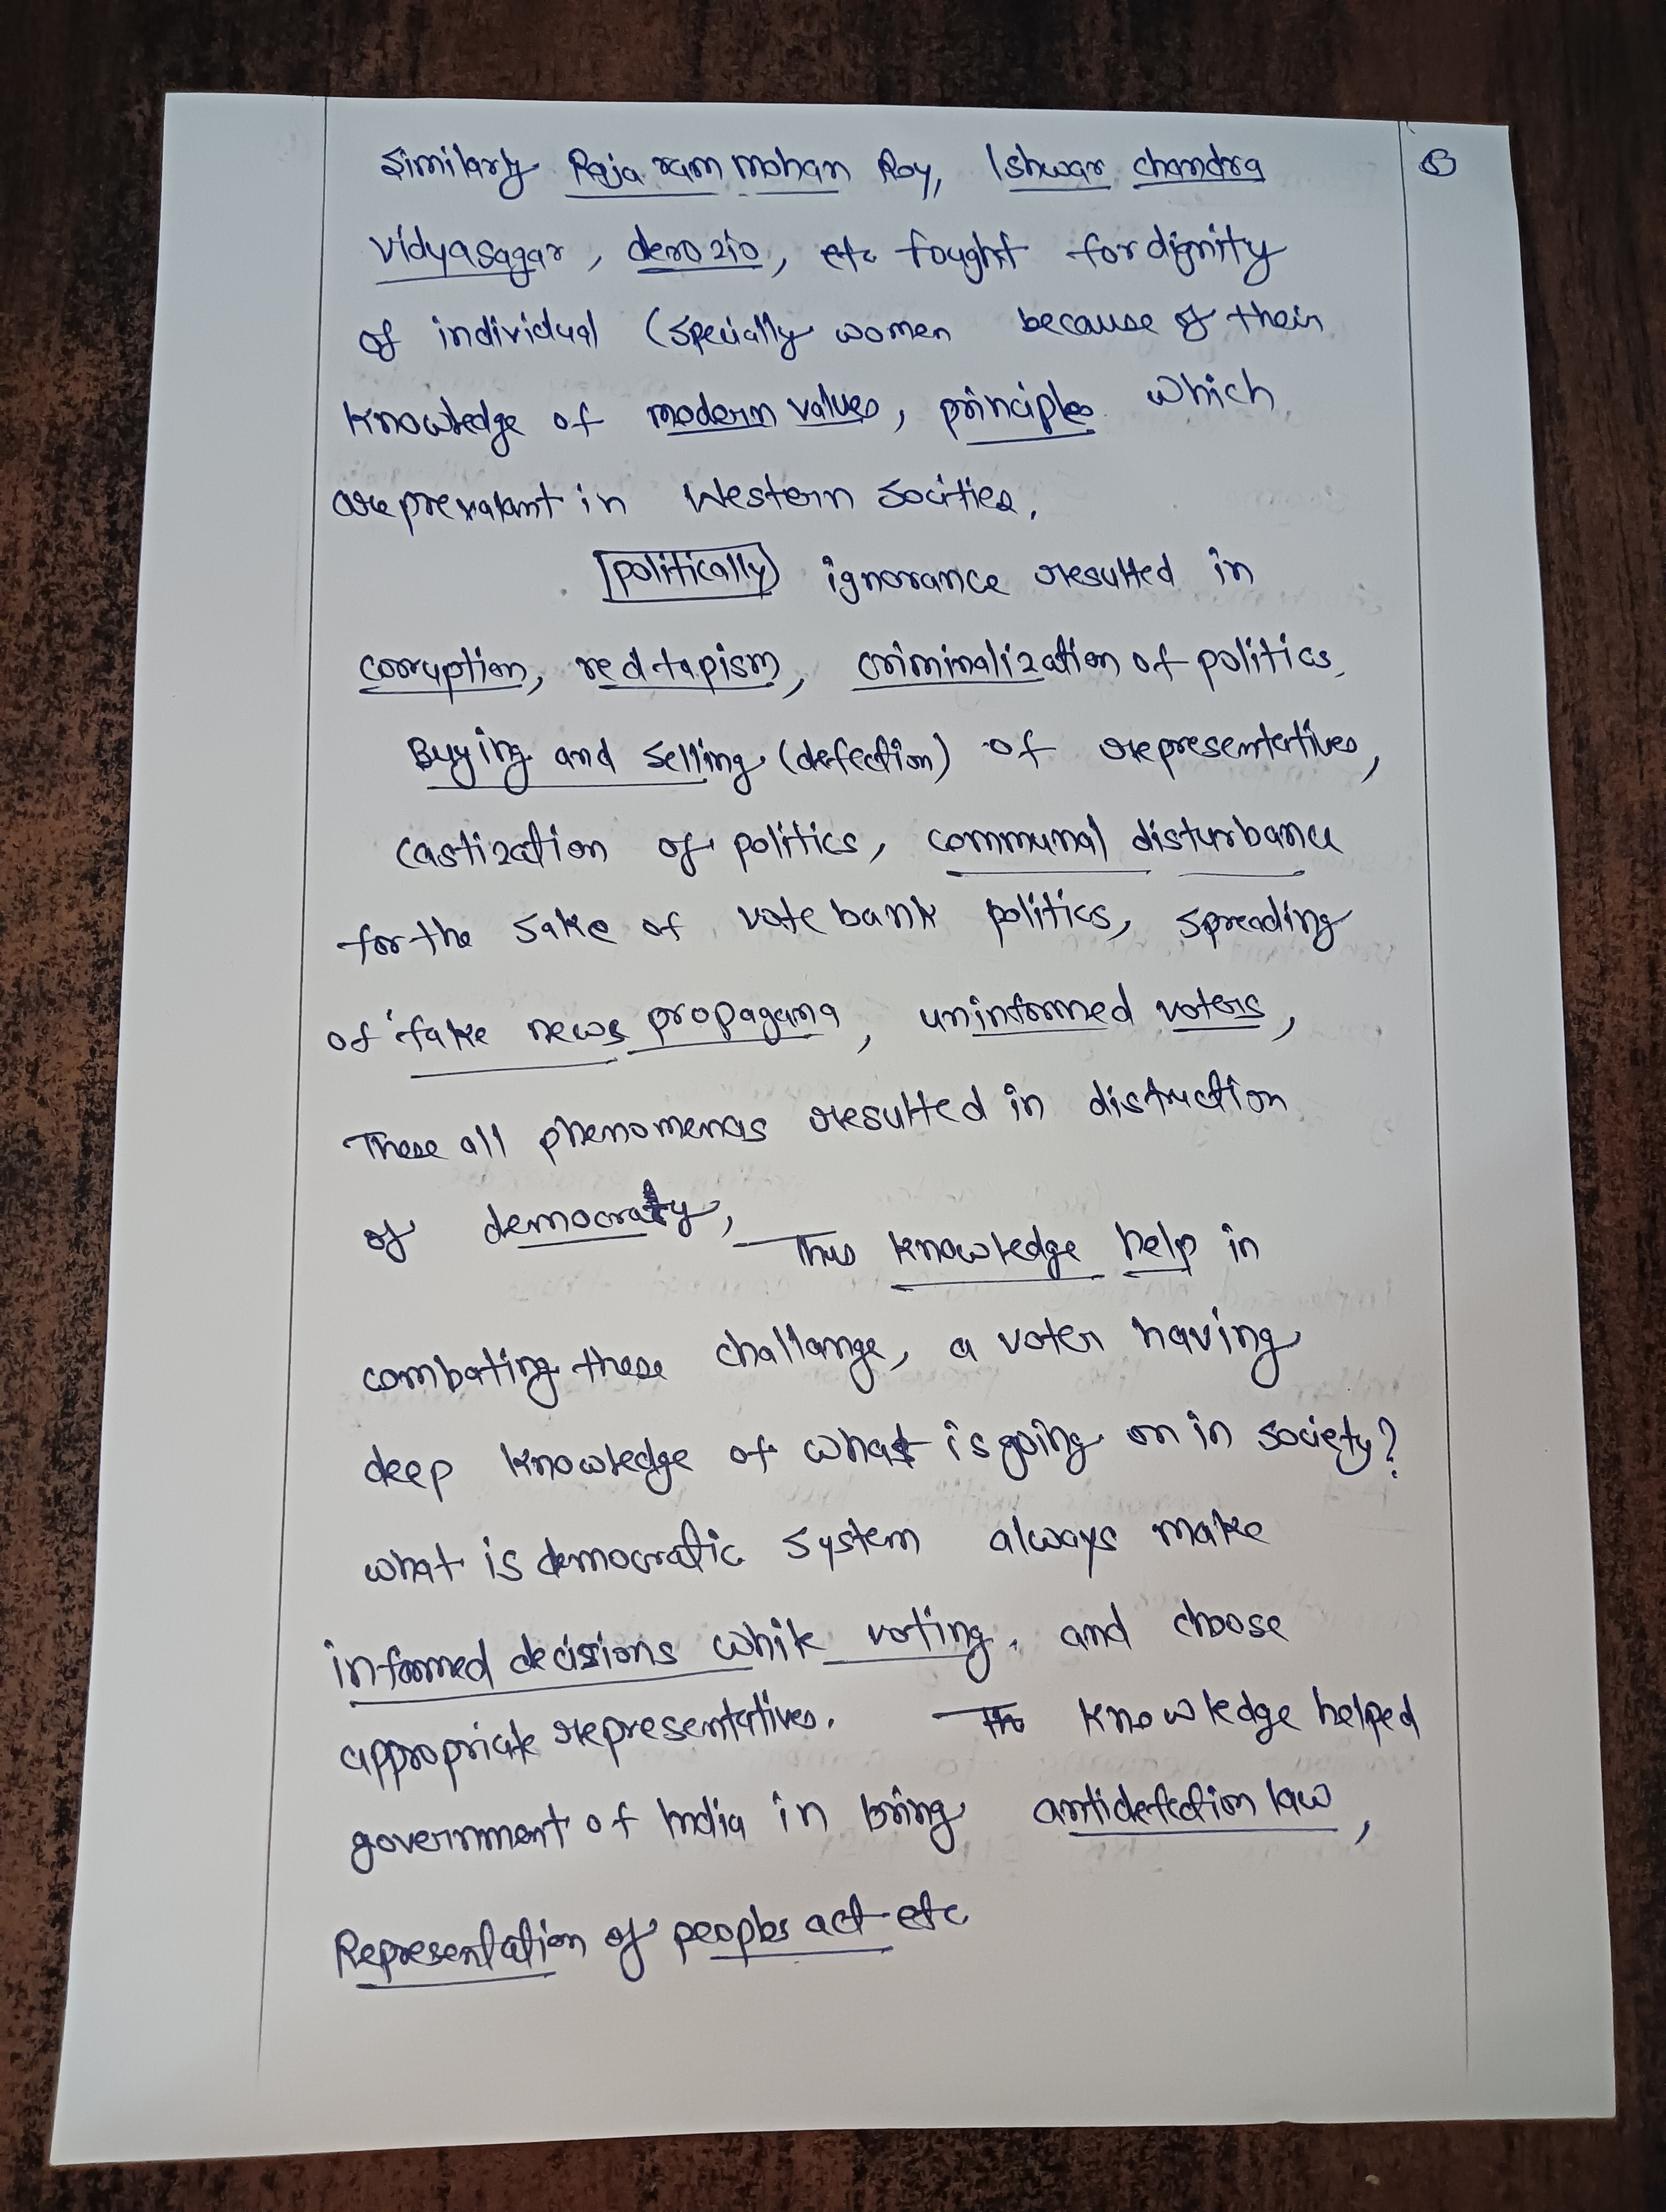 Similarly Raja ram mohan Roy, Ishwar chandra
Vidyasagar, derozio, etc fought for dignity
of individual (specially women because of their
knowledge of modern values, principles which
are prevalant in Western Socities.
[politically] ignorance resulted in
corruption, redtapism, criminalization of politics,
Buying and selling (defection) of representatives,
castization of politics, communal disturbance
for the sake of vote bank politics, spreading
of fake news propagana, uninformed voters,
These all phenomenas resulted in distruction
of democracy, Thus knowledge help in
combating these challange, a voter having
deep knowledge of what is going on in society?
what is democratic system always make
informed decisions while voting, and choose
appropriate representatives. knowledge helped
government of India in bring antidefection law,
Representation of peoples act etc